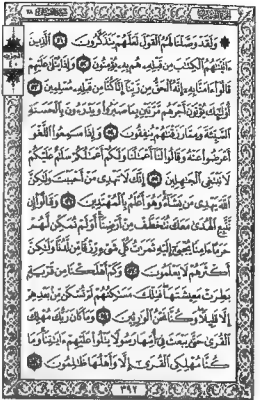 ۞ وَلَقَدْ وَصَّلْنَا لَهُمُ ٱلْقَوْلَ لَعَلَّهُمْ يَتَذَكَّرُونَ ٥١ ٱلَّذِينَ
ءَاتَيْنَٰهُمُ ٱلْكِتَٰبَ مِن قَبْلِهِۦ هُم بِهِۦ يُؤْمِنُونَ ٥٢ وَإِذَا يُتْلَىٰ عَلَيْهِمْ
قَالُوٓا۟ ءَامَنَّا بِهِۦٓ إِنَّهُ ٱلْحَقُّ مِن رَّبِّنَآ إِنَّا كُنَّا مِن قَبْلِهِۦ مُسْلِمِينَ ٥٣
أُو۟لَٰٓئِكَ يُؤْتَوْنَ أَجْرَهُم مَّرَّتَيْنِ بِمَا صَبَرُوا۟ وَيَدْرَءُونَ بِٱلْحَسَنَةِ
ٱلسَّيِّئَةَ وَمِمَّا رَزَقْنَٰهُمْ يُنفِقُونَ ٥٤ وَإِذَا سَمِعُوا۟ ٱللَّغْوَ
أَعْرَضُوا۟ عَنْهُ وَقَالُوا۟ لَنَآ أَعْمَٰلُنَا وَلَكُمْ أَعْمَٰلُكُمْ سَلَٰمٌ عَلَيْكُمْ
لَا نَبْتَغِى ٱلْجَٰهِلِينَ ٥٥ إِنَّكَ لَا تَهْدِى مَنْ أَحْبَبْتَ وَلَٰكِنَّ
ٱللَّهَ يَهْدِى مَن يَشَآءُ وَهُوَ أَعْلَمُ بِٱلْمُهْتَدِينَ ٥٦ وَقَالُوٓا۟ إِن
نَّتَّبِعِ ٱلْهُدَىٰ مَعَكَ نُتَخَطَّفْ مِنْ أَرْضِنَآ أَوَلَمْ نُمَكِّن لَّهُمْ
حَرَمًا ءَامِنًا يُجْبَىٰٓ إِلَيْهِ ثَمَرَٰتُ كُلِّ شَىْءٍ رِّزْقًا مِّن لَّدُنَّا وَلَٰكِنَّ
أَكْثَرَهُمْ لَا يَعْلَمُونَ ٥٧ وَكَمْ أَهْلَكْنَا مِن قَرْيَةٍ
بَطِرَتْ مَعِيشَتَهَا فَتِلْكَ مَسَٰكِنُهُمْ لَمْ تُسْكَن مِّنۢ بَعْدِهِمْ
إِلَّا قَلِيلًا وَكُنَّا نَحْنُ ٱلْوَٰرِثِينَ ٥٨ وَمَا كَانَ رَبُّكَ مُهْلِكَ
ٱلْقُرَىٰ حَتَّىٰ يَبْعَثَ فِىٓ أُمِّهَا رَسُولًا يَتْلُوا۟ عَلَيْهِمْ ءَايَٰتِنَا وَمَا
كُنَّا مُهْلِكِى ٱلْقُرَىٰٓ إِلَّا وَأَهْلُهَا ظَٰلِمُونَ ٥٩
٣٩٢